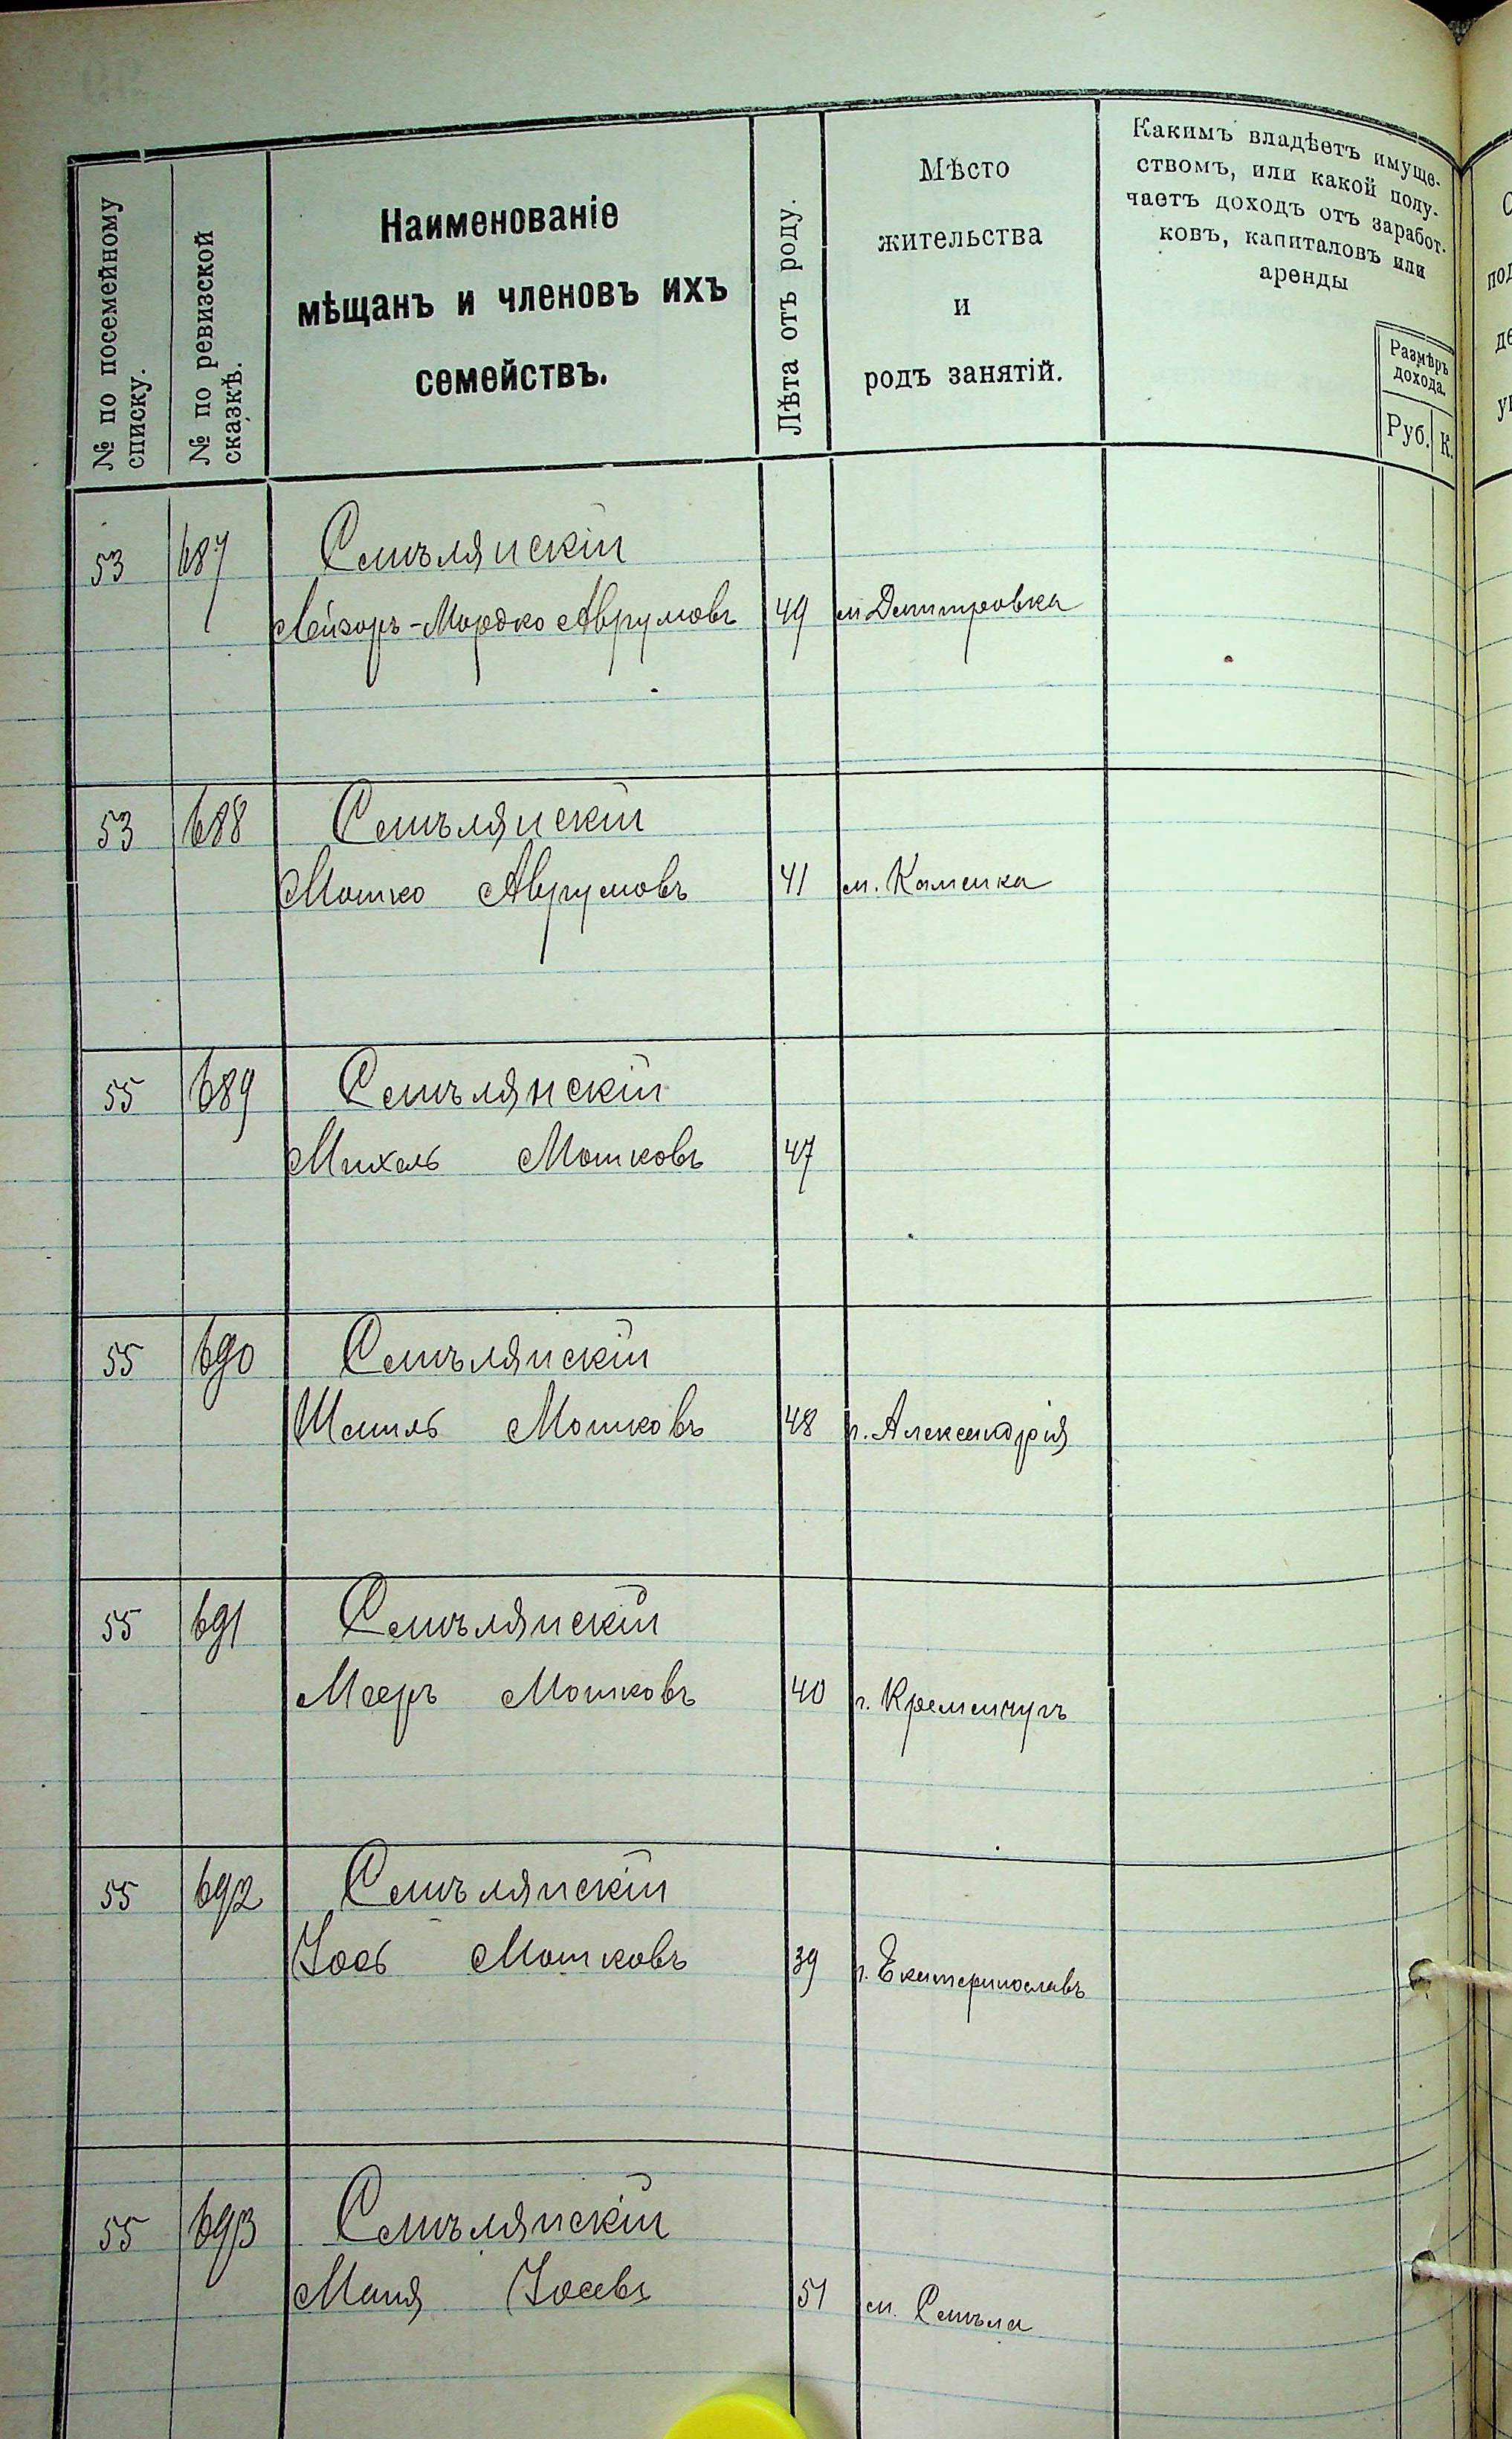 № по посемейному списку.
№ по ревизской сказкѣ.
Наименованіе
мѣщанъ и членовъ ихъ
семействъ.
Лѣта отъ роду.
Мѣсто
жительства
и
родъ занятій.
Какимъ владѣетъ имуще-
ствомъ, или какой полу-
чаетъ доходъ отъ заработ-
ковъ, капиталовъ или
аренды
Размѣръ
дохода.
Руб. К.
53 687 Смѣлянскій
Лейзоръ-Мордко Аврумовъ 49 м Дмитровка
53 688 Смѣлянскій
Мошко Аврумовъ 41 м. Каменка
55 689 Смѣлянскій
Михель Мошковъ 47
55 690 Смѣлянскій
Шмиль Мошковъ 48 г. Александрія
55 691 Смѣлянскій
Меер Мошковъ 40 г. Кременчугъ
55 692 Смѣлянскій
Іось Мошковъ 39 г. Екатеринославъ
55 693 Смѣлянскій
Маня Іосевъ 51 м. Смѣла